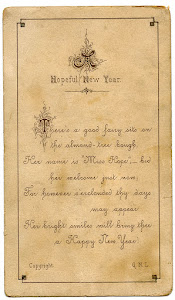 A
Hopeful New Year.
There's a good fairy sits on
the almond-tree bough.
Her name is "Miss Hope" — bid
her welcome just now;
For however clouded thy days
may appear
Her bright smiles will bring thee
a Happy New Year
Copyright